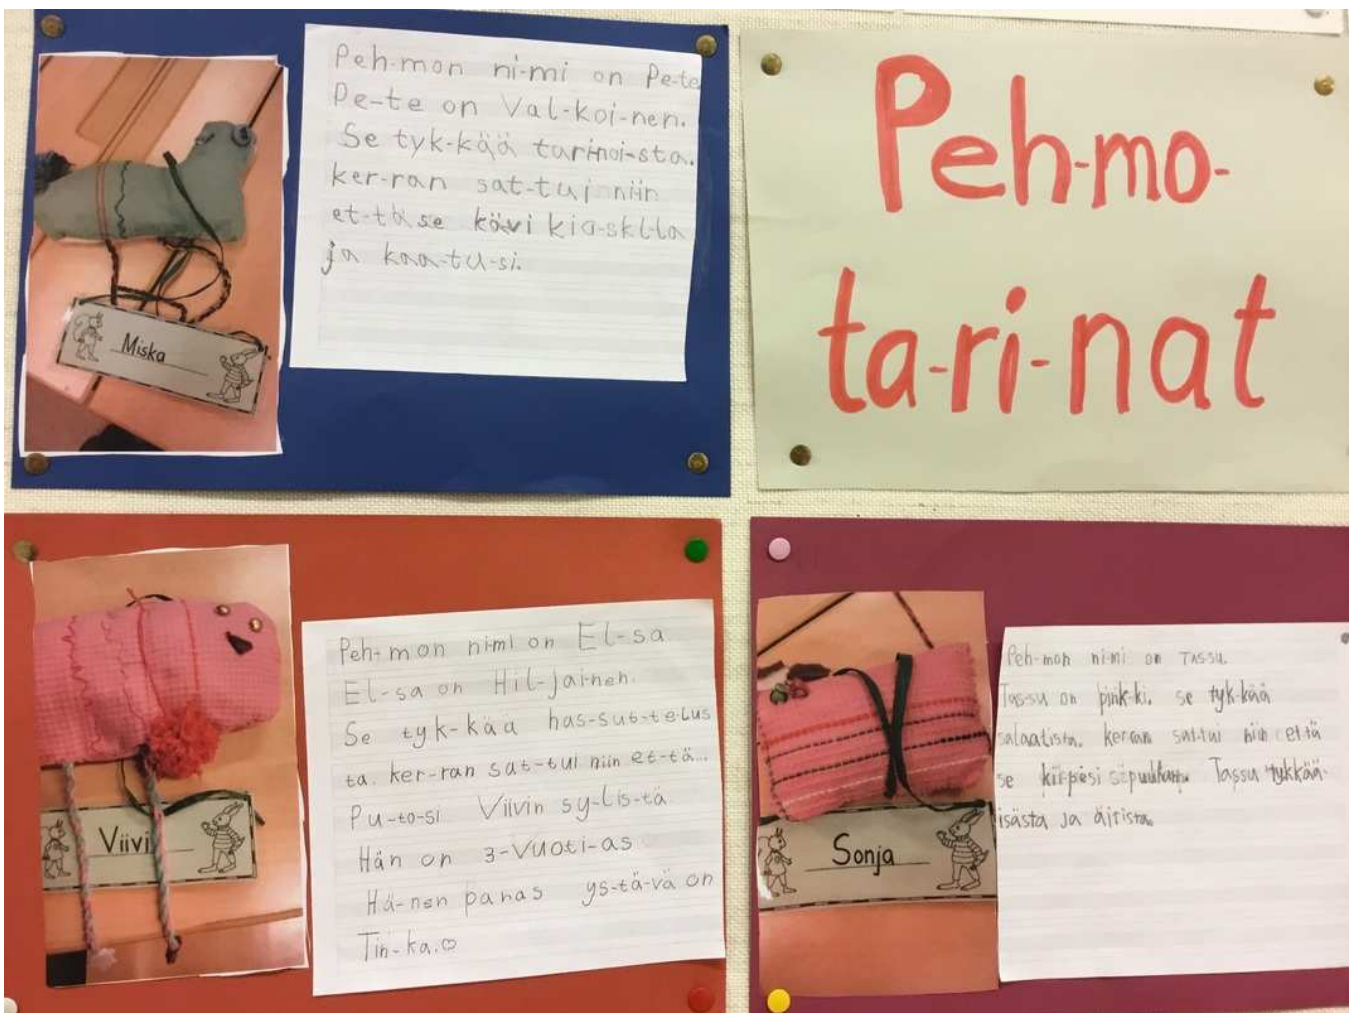 Peh-mon ni-mi on Pe-te
Pe-te on Val-koi-nen.
Se tyk-kää tarinoi-sta.
ker-ran sat-tui niin
et-tä se kävi
ja kaa-tu-si.
Miska
Peh-mo-
ta-ri-nat
Peh-mon ni-mi on El-sa
El-sa on Hil-jai-nen.
Se tyk-kää has-sut-te-lus
ta. ker-ran sat-tui niin et-tä...
Pu-to-si Viivin sy-lis-tä
Hän on 3-Vuoti-as
Hä-nen paras ys-tä-vä on
Tin-ka.♡
Viivi
Peh-mon ni-mi on Tassu.
Tas-su on pink-ki. se tyk-kää
salaatista. kerran sat-tui niin et-tä
se kiipesi Tassu tykkää
isästä ja äitistä.
Sonja